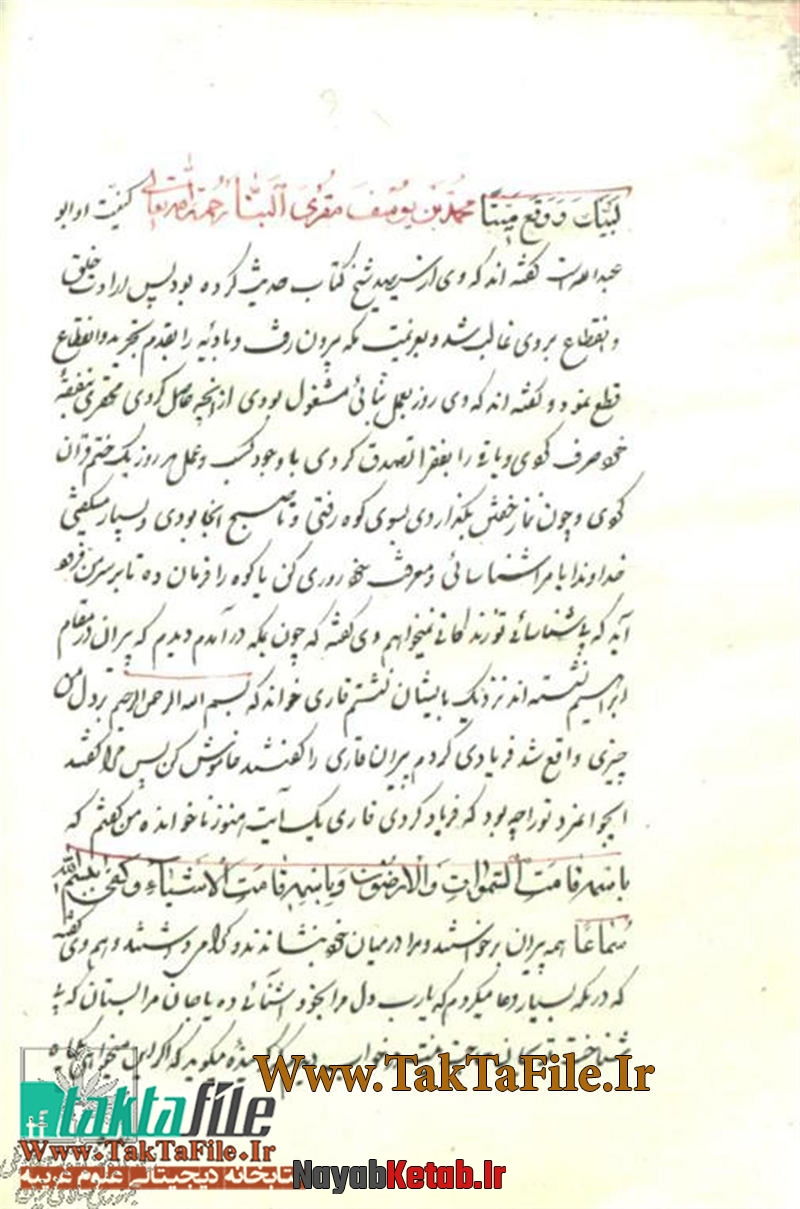 لبیّات و وقع میتا محمد بن یوسف مقری البنّا رحمة الله تعالی کنیت او ابو
عبدالله است گفته اند که وی از سیصد شیخ کتاب حدیث کرده بود پس ارادت خلق
و انقطاع بر وی غالب شد و بعزیمت مکه بیرون رفت و بادیه را بقدم تجرید و انقطاع
قطع نمود و گفته اند که وی روز بعمل بنائی مشغول بودی از انچه حاصل کردی محقری بنفقهٔ
خود صرف کردی و باقی را بفقرا تصدق کردی با وجود کسب و عمل هر روز یک ختم قرآن
کردی و چون نماز خفتن بگذاردی بسوی کوه رفتی و تا صبح آنجا بودی و بسیار میگفتی
خداوندا یا مرا شناسائی و معرفت خود روزی کن یا کوه را فرمان ده تا بر سر من فرود
آید که بی شناسائی تو زندگانی نمیخواهم وی گفته که چون بمکه درآمدم دیدم که پیران در مقام
ابراهیم نشسته اند نزدیک بایشان نشستم قاری خواند که بسم الله الرحمن الرحیم بر دل من
چیزی واقع شد فریادی کردم پیران قاری را گفتند خاموش کن پس مرا گفتند
ای جوانمرد ترا چه بود که فریاد کردی قاری یک آیت هنوز ناخوانده من گفتم که
باسمه قامت السموات والارضون وباسمه قامت الاشیاء وکفی بسم الله
سماعا همه پیران برخاستند و مرا در میان خود بنشاندند و گرامی داشتند و هم وی گفته
که در مکه بسیار دعا میکردم که یارب دل مرا بخود آشنائی ده یا جان مرا بستان که بی
شناخت تو در خواب دیدم که گوینده میگوید که اگر این میخواهی یک ماه
Www.TakTaFile.Ir
taktafile
Www.TakTaFile.Ir
کتابخانه دیجیتالی علوم غریبه NayabKetab.Ir